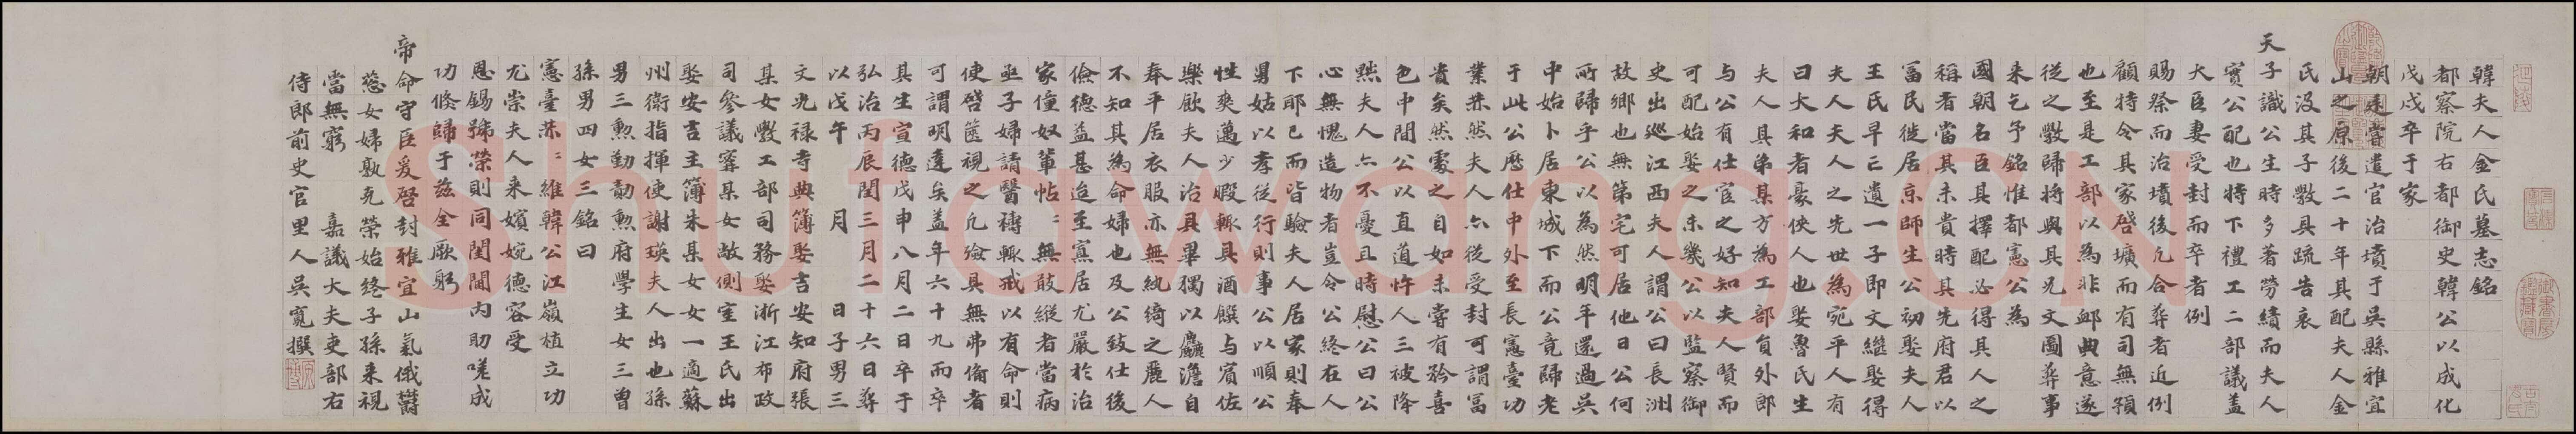 韓夫人金氏墓志銘
都察院右都御史韓公以成化
戊戌卒于家
朝廷嘗遣官治墳于吳縣雅宜
山之原後二十年其配夫人金
氏沒其子敷具疏告哀
天
子識公生時多著勞績而夫人
實公配也特下禮工二部議蓋
大臣妻受封而卒者例
賜祭而治墳後凡合葬者近例
顧特令其家啓壙而有司無預
也至是工部以為非卹典意遂
從之敷歸將與其兄文圖葬事
來乞予銘惟都憲公為
國朝名臣其擇配必得其人之
稱者當其未貴時其先府君以
富民徙居京師生公初娶夫人
王氏早亡遺一子即文繼娶得
夫人夫人之先世為宛平人有
曰大和者豪俠人也娶魯氏生
夫人其弟某方為工部員外郎
與公有仕宦之好知夫人賢而
可配始娶之未幾公以監察御
史出巡江西夫人謂公曰長洲
故鄉也無第宅可居他日公何
所歸乎公以為然明年還過吳
中始卜居東城下而公竟歸老
于此公歷仕中外至長憲臺功
業赫然夫人亦從受封可謂富
貴矣然處之自如未嘗有矜喜
色中間公以直道忤人三被降
黜夫人亦不憂且時慰公曰公
心無愧造物者豈令公終在人
下耶已而皆驗夫人居家則奉
舅姑以孝從行則事公以順公
性爽邁少暇輒具酒饌與賓佐
樂飲夫人治具畢獨以麤澹自
奉平居衣服亦無紈綺之麗人
不知其為命婦也及公致仕後
儉德益甚迨至寡居尤嚴於治
家僮奴輩帖〻無敢縱者當病
亟子婦請醫禱輒戒以有命則
使啓篋視之凡殮具無弗備者
可謂明達矣蓋年六十九而卒
其生宣德戊申八月二日卒于
弘治丙辰閏三月二十六日葬
以戊午　月　　日子男三
文光祿寺典簿娶吉安知府張
某女敷工部司務娶浙江布政
司參議寗某女敞側室王氏出
娶安吉主簿朱某女女一適蘇
州衛指揮使謝瑛夫人出也孫
男三勲勤勣勲府學生女三曾
孫男四女三銘曰
憲臺赫〻維韓公江嶺植立功
尤崇夫人來嬪婉德容受
恩錫號榮則同閨閫內助嗟成
功脩歸于茲全厥躬
帝命守臣爰啓封雅宜山氣俄鬱
葱女婦孰克榮始終子孫來視
當無窮　　嘉議大夫吏部右
侍郎前史官里人吳寬撰
Shufawang.CN